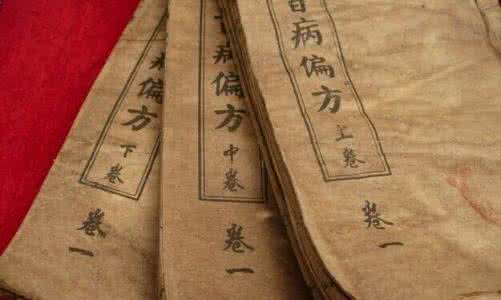 百病偏方 上卷
卷一
病偏方 中卷
卷一
病偏方 下卷
卷一